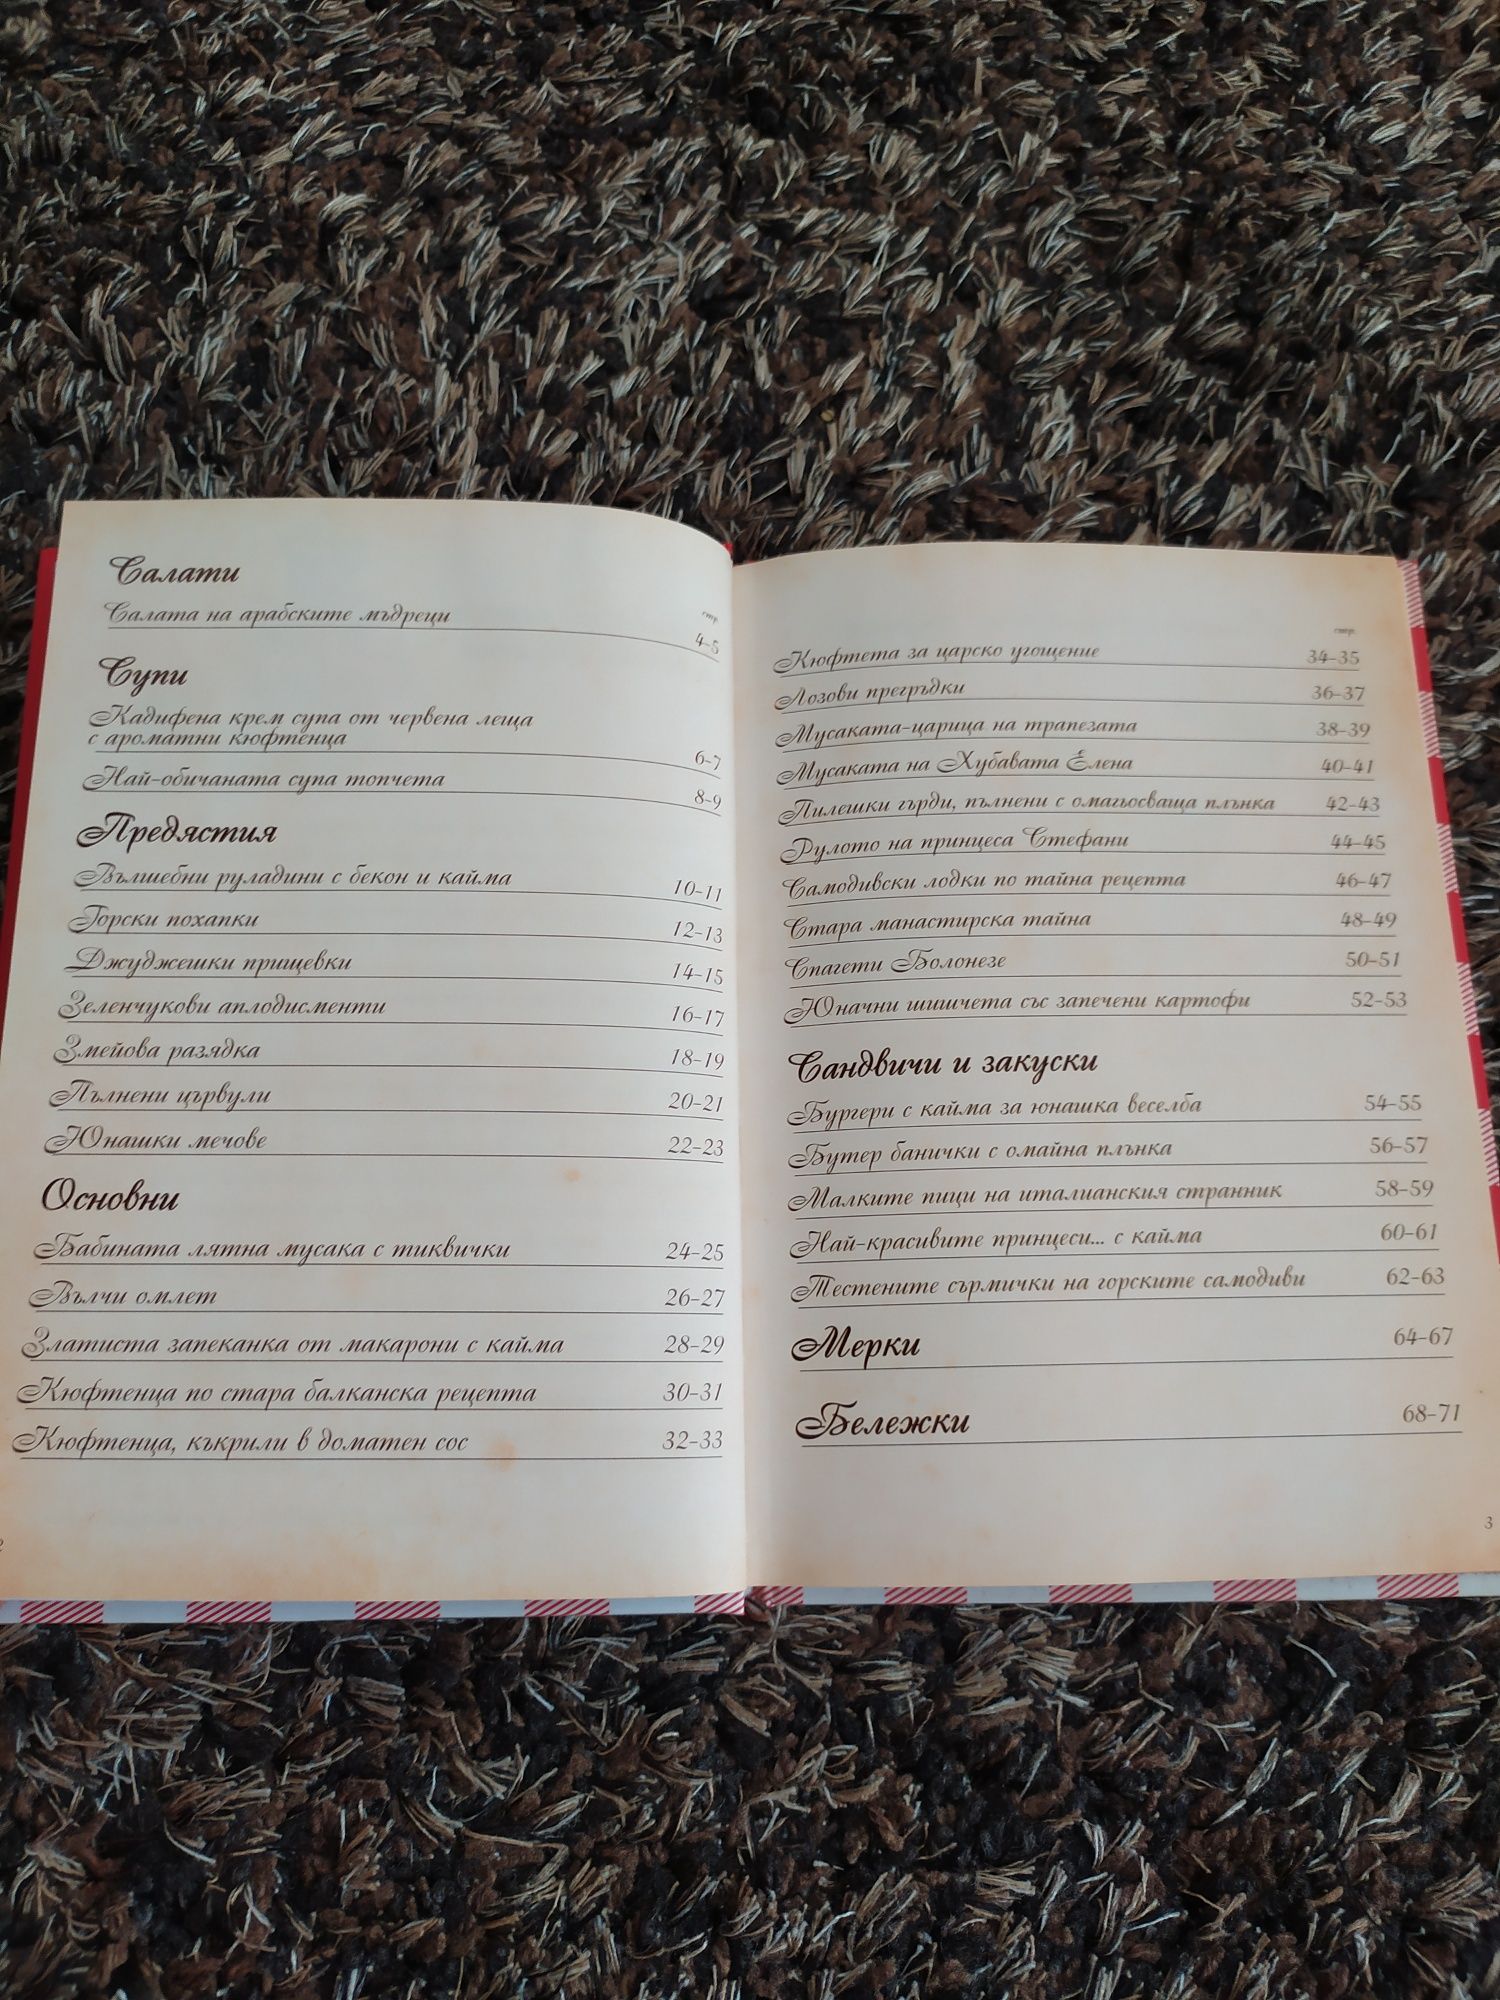 Салати
стр.
Салата на арабските мъдреци 4-5
Супи
Кадифена крем супа от червена леща
с ароматни кюфтенца 6-7
Най-обичаната супа топчета 8-9
Предястия
Вълшебни руладини с бекон и кайма 10-11
Горски похапки 12-13
Джуджешки прищевки 14-15
Зеленчукови аплодисменти 16-17
Змейова разядка 18-19
Пълнени цървули 20-21
Юнашки мечове 22-23
Основни
Бабината лятна мусака с тиквички 24-25
Вълчи омлет 26-27
Златиста запеканка от макарони с кайма 28-29
Кюфтенца по стара балканска рецепта 30-31
Кюфтенца, къкрили в доматен сос 32-33
2
стр.
Кюфтета за царско угощение 34-35
Лозови прегръдки 36-37
Мусаката-царица на трапезата 38-39
Мусаката на Хубавата Елена 40-41
Пилешки гърди, пълнени с омагьосваща плънка 42-43
Рулото на принцеса Стефани 44-45
Самодивски лодки по тайна рецепта 46-47
Стара манастирска тайна 48-49
Спагети Болонезе 50-51
Юначни шишчета със запечени картофи 52-53
Сандвичи и закуски
Бургери с кайма за юнашка веселба 54-55
Бутер банички с омайна плънка 56-57
Малките пици на италианския странник 58-59
Най-красивите принцеси... с кайма 60-61
Тестените сърмички на горските самодиви 62-63
Мерки 64-67
Бележки 68-71
3